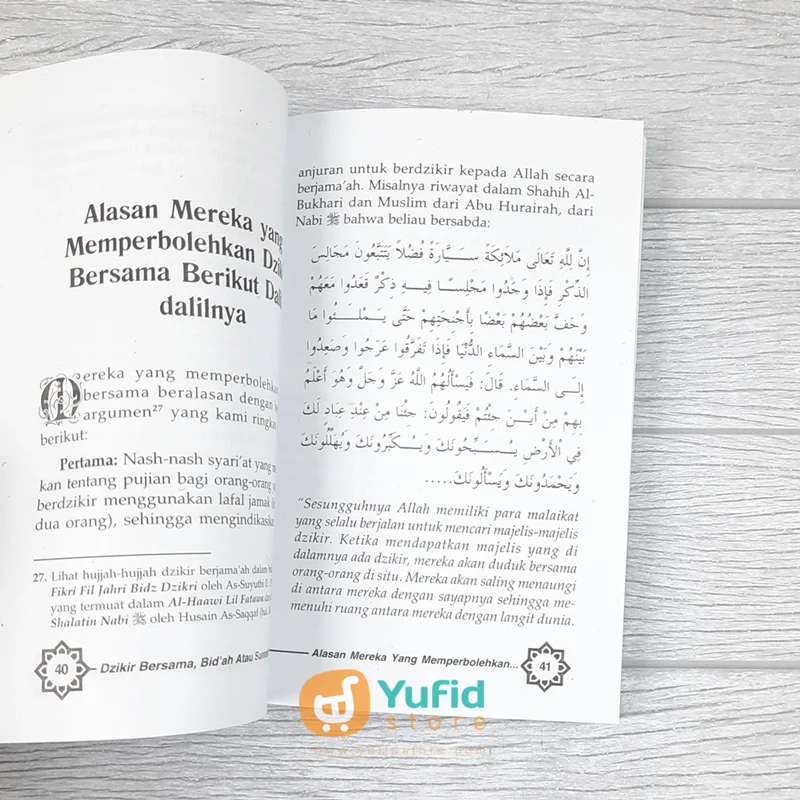 Alasan Mereka yang
Memperbolehkan
Bersama Berikut
dalilnya
Mereka yang memperbolehkan
bersama beralasan dengan
argumen27 yang kami
berikut:
Pertama: Nash-nash syari'at yang
kan tentang pujian bagi orang-orang
berdzikir menggunakan lafal jamak
dua orang), sehingga
27. Lihat hujjah-hujjah dzikir berjama'ah dalam
Fikri Fil Jahri Bidz Dzikri oleh As-Suyuthi
yang termuat dalam Al-Haawi Lil
Shalatin Nabi ﷺ oleh Husain As-Saqqaf
40
Dzikir Bersama, Bid'ah Atau
anjuran untuk berdzikir kepada Allah secara
berjama'ah. Misalnya riwayat dalam Shahih Al-
Bukhari dan Muslim dari Abu Hurairah, dari
Nabi ﷺ bahwa beliau bersabda:
إِنَّ لِلَّهِ تَعَالَى مَلَائِكَةً سَيَّارَةً فُضُلًا يَتَتَبَّعُونَ مَجَالِسَ
الذِّكْرِ فَإِذَا وَجَدُوا مَجْلِسًا فِيهِ ذِكْرٌ قَعَدُوا مَعَهُمْ
وَحَفَّ بَعْضُهُمْ بَعْضًا بِأَجْنِحَتِهِمْ حَتَّى يَمْلَئُوا مَا
بَيْنَهُمْ وَبَيْنَ السَّمَاءِ الدُّنْيَا فَإِذَا تَفَرَّقُوا عَرَجُوا وَصَعِدُوا
إِلَى السَّمَاءِ. قَالَ: فَيَسْأَلُهُمُ اللهُ عَزَّ وَجَلَّ وَهُوَ أَعْلَمُ
بِهِمْ مِنْ أَيْنَ جِئْتُمْ فَيَقُولُونَ: جِئْنَا مِنْ عِنْدِ عِبَادٍ لَكَ
فِي الْأَرْضِ يُسَبِّحُونَكَ وَيُكَبِّرُونَكَ وَيُهَلِّلُونَكَ
وَيَحْمَدُونَكَ وَيَسْأَلُونَكَ.....
"Sesungguhnya Allah memiliki para malaikat
yang selalu berjalan untuk mencari majelis-majelis
dzikir. Ketika mendapatkan majelis yang di
dalamnya ada dzikir, mereka akan duduk bersama
orang-orang di situ. Mereka akan saling menaungi
di antara mereka dengan sayapnya sehingga me-
menuhi ruang antara mereka dengan langit dunia.
Alasan Mereka Yang Memperbolehkan...
41
Yufid
store
www.yufidstore.com